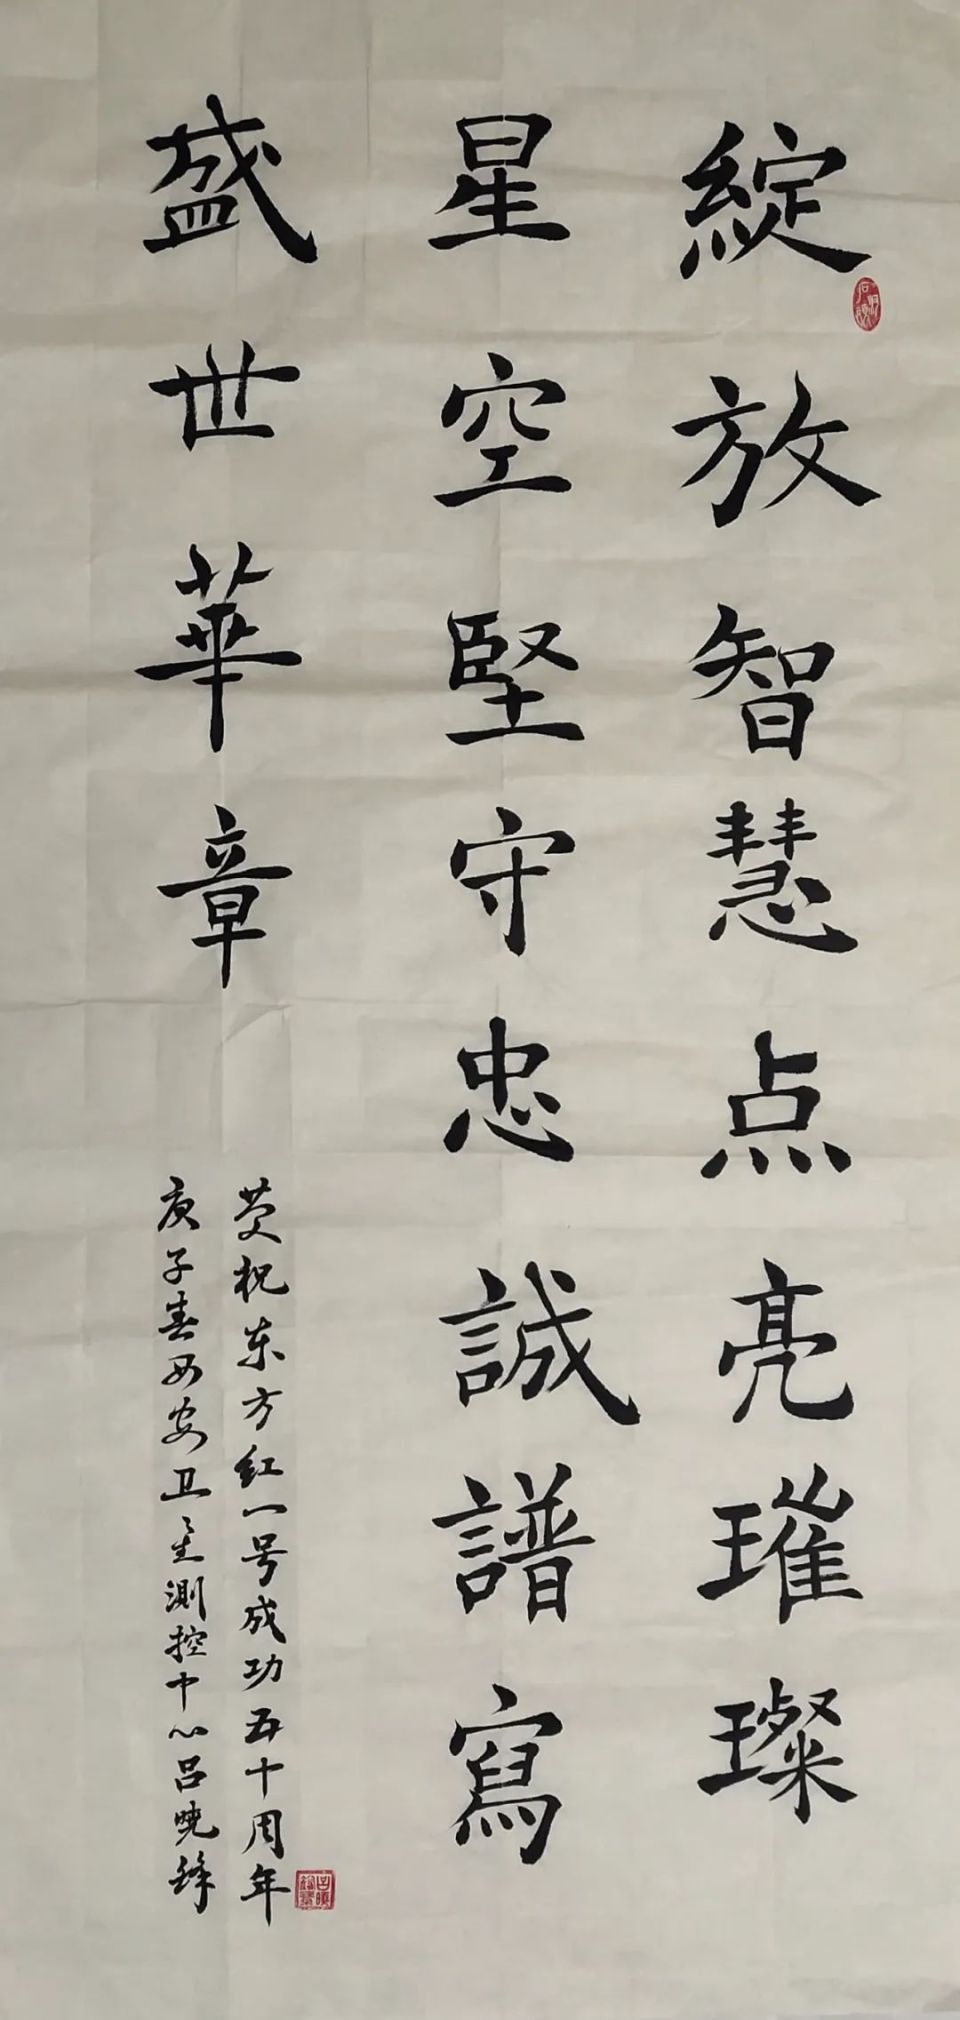 綻放智慧点亮璀璨
星空堅守忠誠譜寫
盛世華章
荧祝东方红一号成功五十周年
庚子春西安卫星测控中心吕晓锋